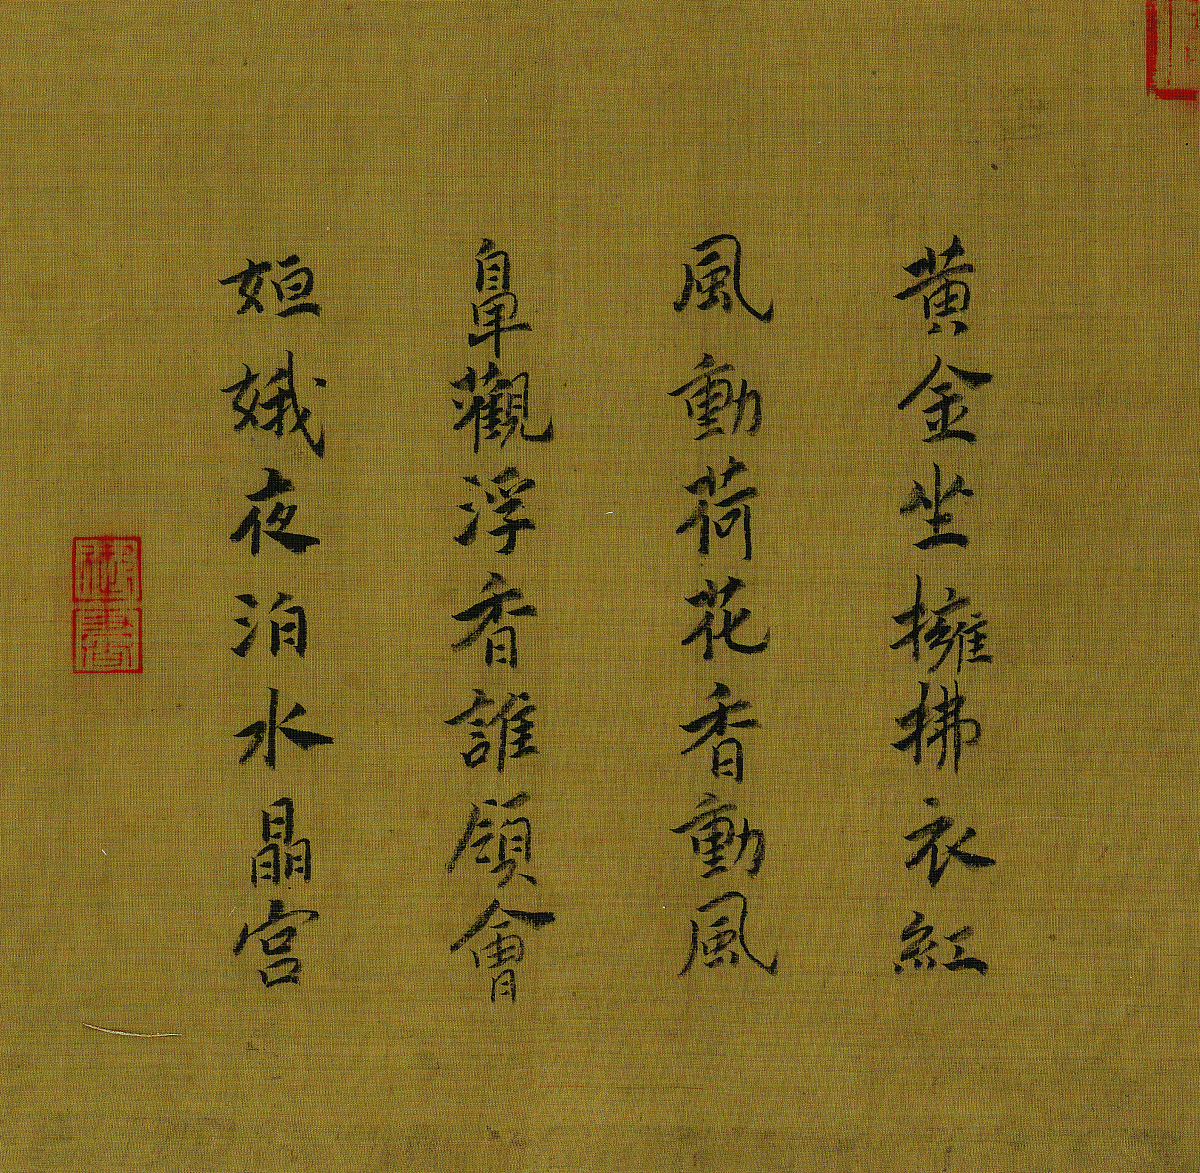 黃金坐擁拂衣紅
風動荷花香動風
鼻觀浮香誰領會
姮娥夜泊水晶宮
御書